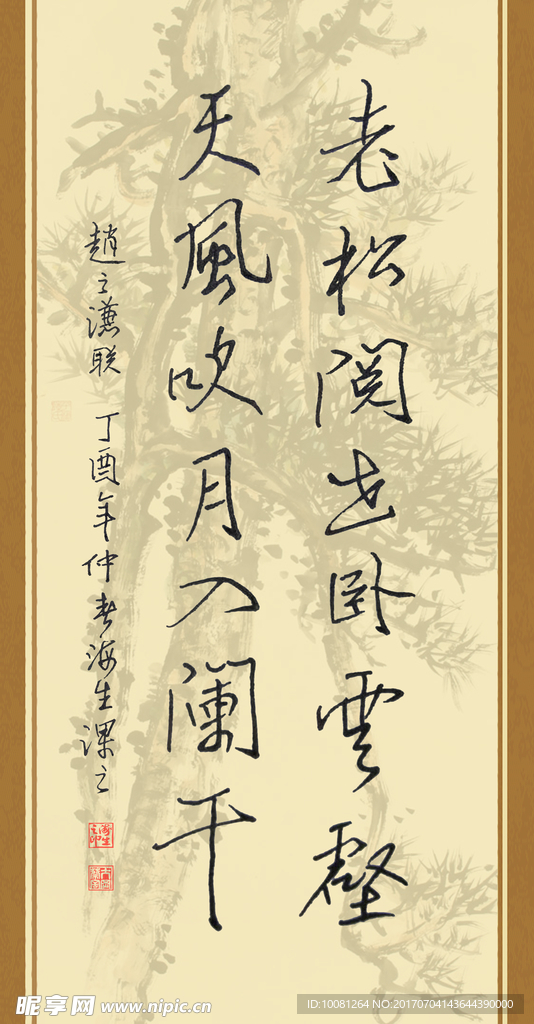 老松閱世卧雲壑
天風吹月入闌干
趙之謙联 丁酉年仲春海生課之
海生之印
昵享网 www.nipic.cn
ID:10081264 NO:20170704143644390000